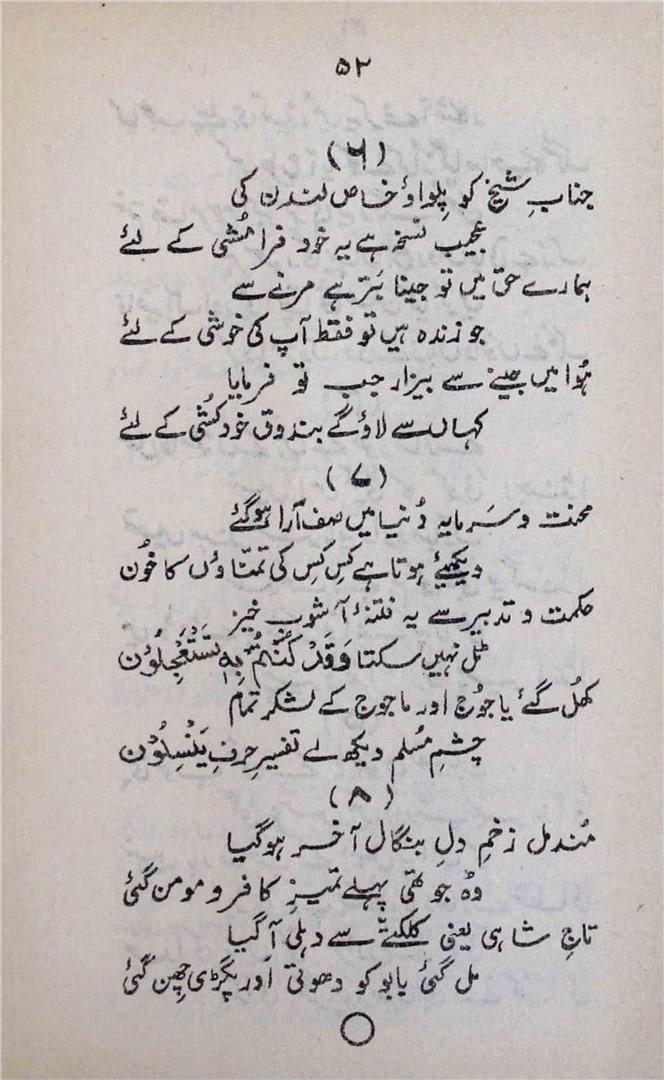 ۵۲
(۶)
جنابِ شیخ کو پِلواؤ خاص لندن کی
عجیب نسخہ ہے یہ خود فرامُشی کے لئے
ہمارے حق میں تو جینا بَتّر ہے مرنے سے
جو زندہ ہیں تو فقط آپ کی خوشی کے لئے
ہُوا میں جینے سے بیزار جب تو فرمایا
کہاں سے لاؤ گے بندوق خودکُشی کے لئے
(۷)
محنت و سَرمایہ دُنیا میں صف آرا ہو گئے
دیکھئے ہوتا ہے کس کس کی تمنّاؤں کا خُون
حکمت و تدبیر سے یہ فتنۂ آشوب خیز
ٹل نہیں سکتا وَقَدْ کُنْتُمْ بِہٖ تَسْتَعْجِلُوْن
کھُل گئے یاجُوج اور ماجوج کے لشکر تمام
چشمِ مُسلم دیکھ لے تفسیرِ حرفِ یَنْسِلُوْن
(۸)
مُندمل زخمِ دلِ بنگال آخر ہو گیا
وُہ جو تھی پہلے تمیزِ کافر و مومن گئی
تاجِ شاہی یعنی کلکتّے سے دہلی آ گیا
مل گئی بابو کو دھوتی اور پگڑی چھِن گئی